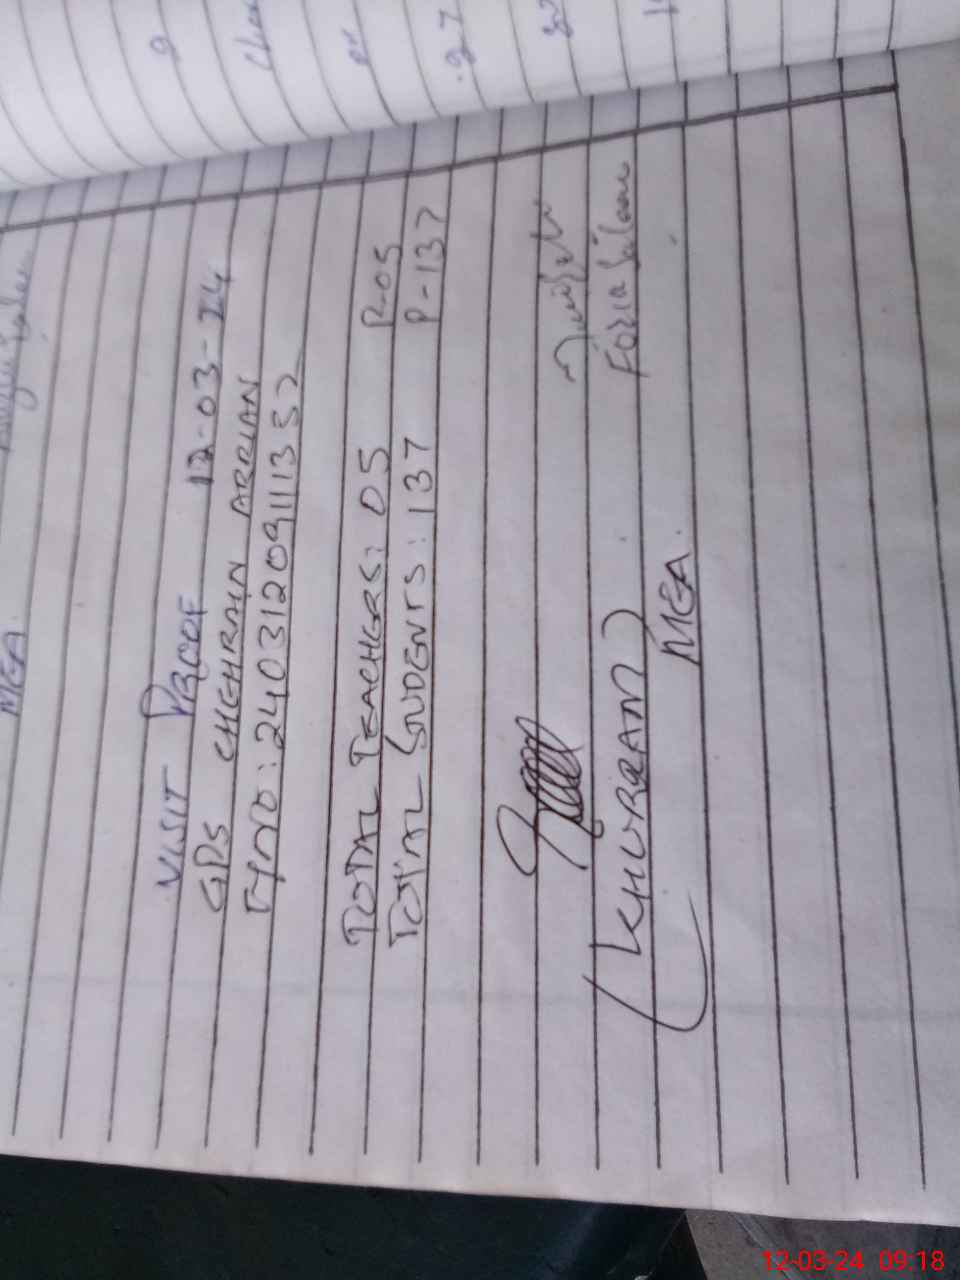 MEA.
VISIT PROOF 12-03-24
GPS CHEHRAIN ARRIAN
FMID: 24031209111352
TOTAL TEACHERS: 05 P-05
TOTAL STUDENTS: 137 P-137
(KHURRAM) Fozia Salam
MEA.
12-03-24 09:18